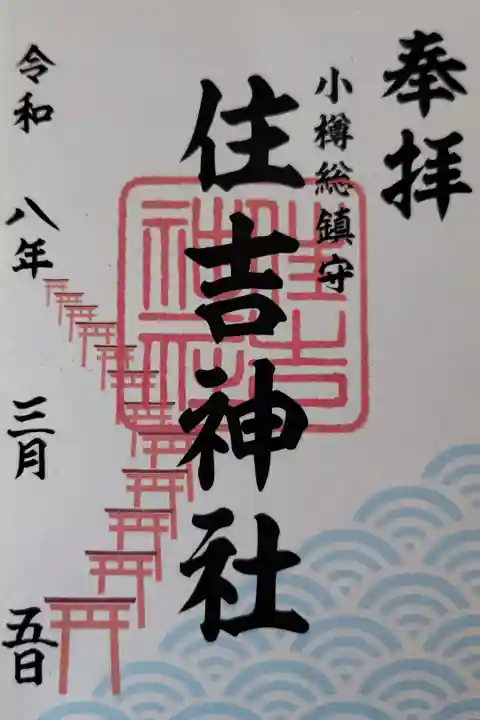 奉拝
小樽総鎮守
住吉神社
住吉神社
令和八年三月五日